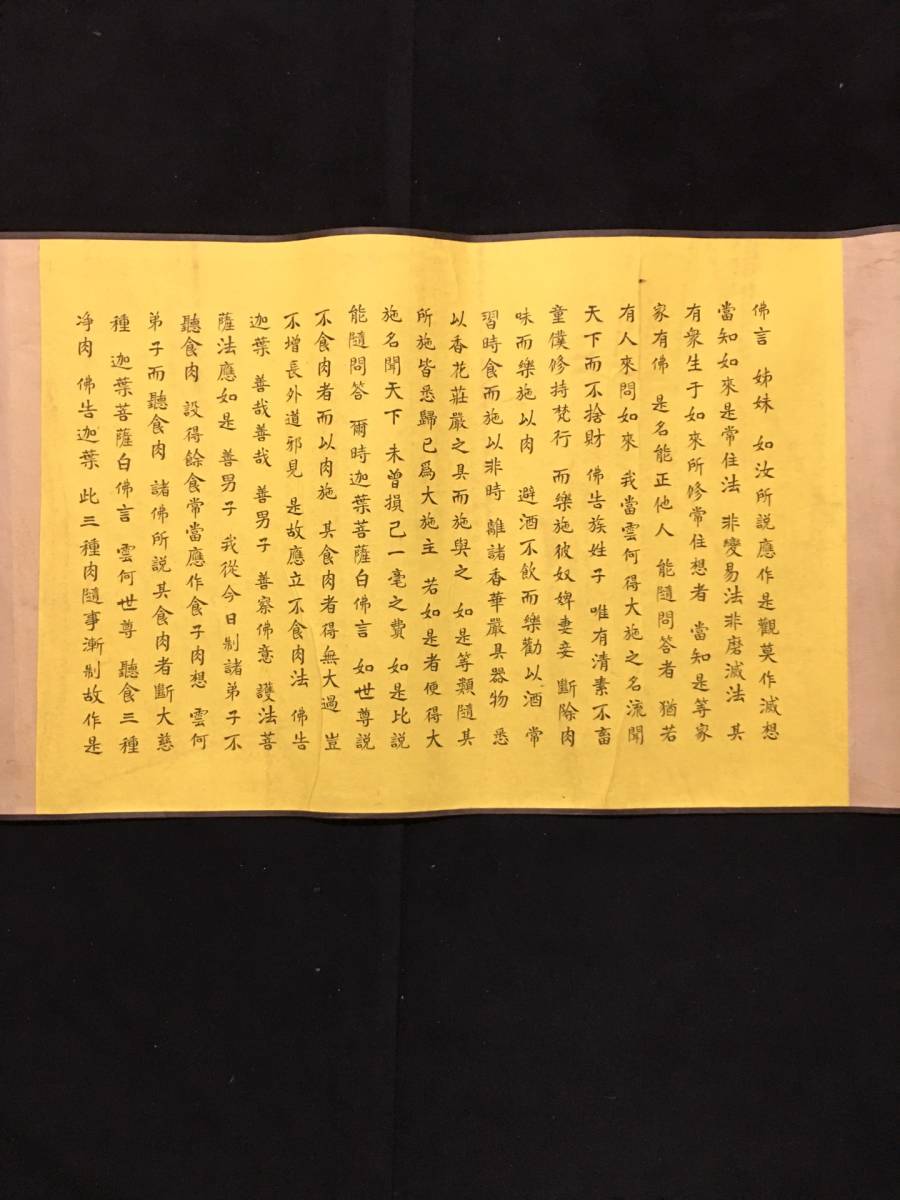 佛言 姊妹 如汝所説應作是觀莫作滅想
當知如來是常住法 非變易法非磨滅法 其
有衆生于如來所修常住想者 當知是等家
家有佛 是名能正他人 能隨問答者 猶若
有人來問如來 我當雲何得大施之名流聞
天下而不捨財 佛告族姓子 唯有清素不畜
童僕修持梵行 而樂施彼奴婢妻妾 斷除肉
味而樂施以肉 避酒不飲而樂勸以酒 常
習時食而施以非時 離諸香華嚴具器物 悉
以香花莊嚴之具而施與之 如是等類隨其
所施皆悉歸已爲大施主 若如是者便得大
施名聞天下 未曾損己一毫之費 如是比説
能隨問答 爾時迦葉菩薩白佛言 如世尊説
不食肉者而以肉施 其食肉者得無大過 豈
不增長外道邪見 是故應立不食肉法 佛告
迦葉 善哉善哉 善男子 善察佛意 護法菩
薩法應如是 善男子 我從今日制諸弟子不
聽食肉 設得餘食常當應作食子肉想 雲何
弟子而聽食肉 諸佛所説其食肉者斷大慈
種 迦葉菩薩白佛言 雲何世尊 聽食三種
净肉 佛告迦葉 此三種肉隨事漸制故作是